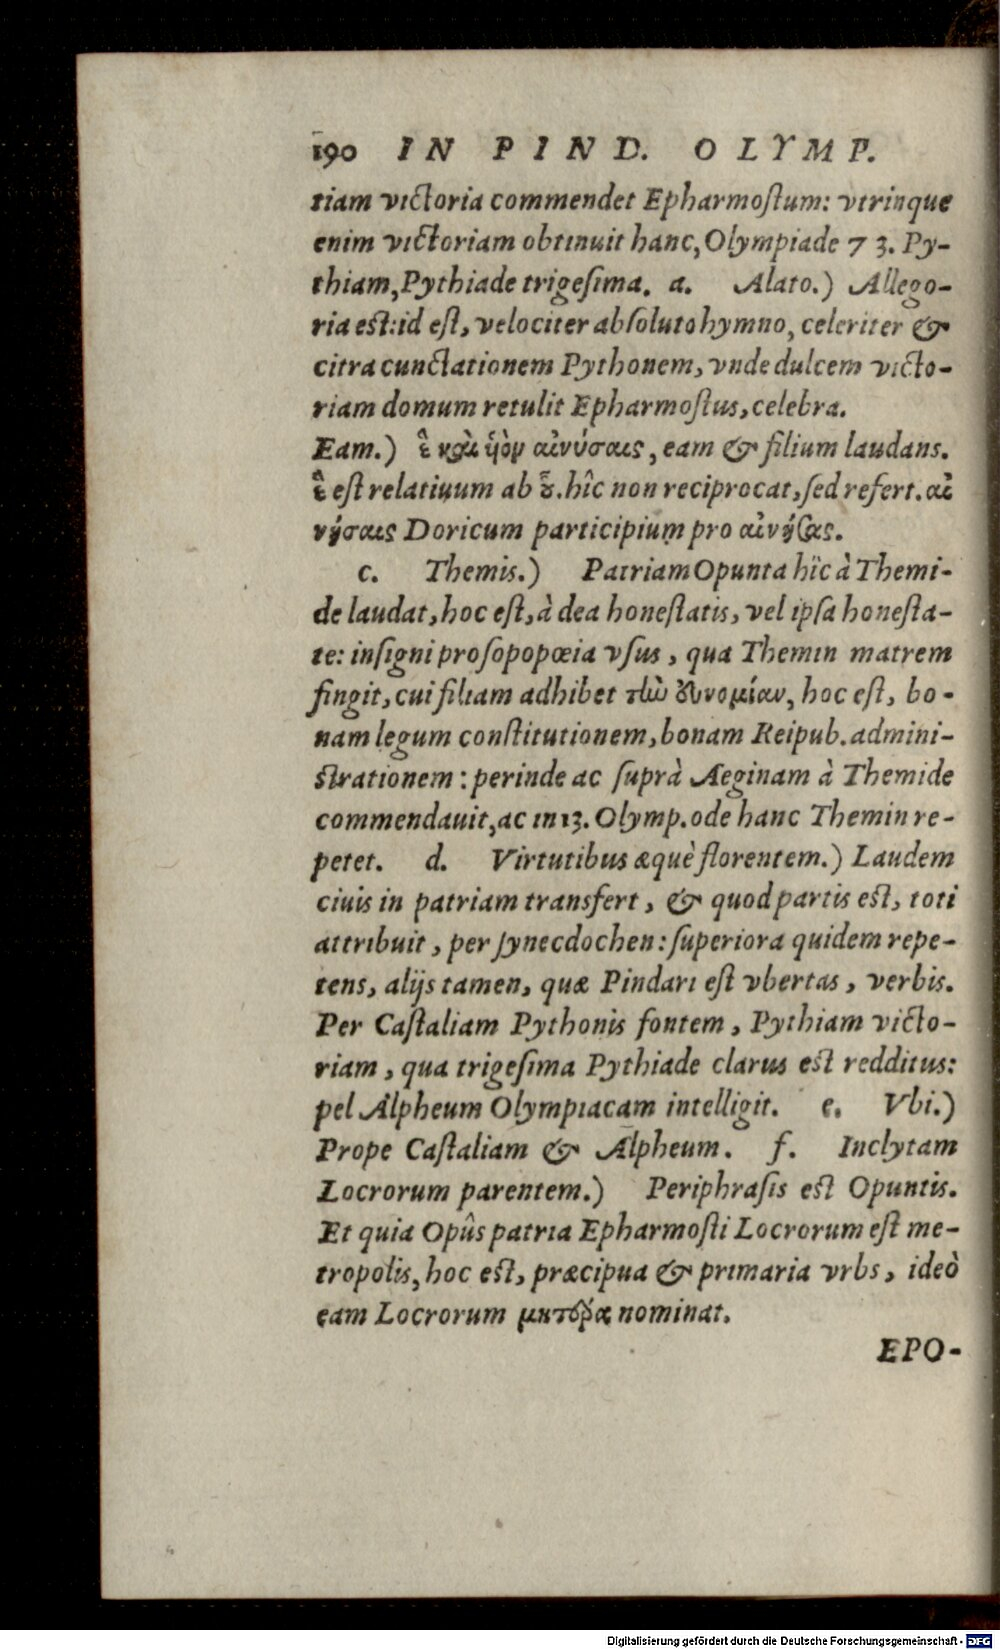 190 IN PIND. OLYMP.
tiam victoria commendet Epharmoſtum: vtrinque
enim victoriam obtinuit hanc, Olympiade 73. Py-
thiam, Pythiade trigeſima. a. Alato.) Allego-
ria eſt: id eſt, velociter abſoluto hymno, celeriter &
citra cunctationem Pythonem, vnde dulcem victo-
riam domum retulit Epharmoſtus, celebra.
Eam.) ἓ καὶ ὑὸν αἰνύσαις, eam & filium laudans.
ἓ eſt relatiuum ab ὅ. hîc non reciprocat, ſed refert. αἰ
νήσαις Doricum participium pro αἰνήσας.
c. Themis.) Patriam Opunta hîc à Themi-
de laudat, hoc eſt, à dea honeſtatis, vel ipſa honeſta-
te: inſigni proſopopœia vſus, qua Themin matrem
fingit, cui filiam adhibet τὼ ὐνομίαν, hoc eſt, bo-
nam legum conſtitutionem, bonam Reipub. admini-
ſtrationem: perinde ac ſuprà Aeginam à Themide
commendauit, ac in 13. Olymp. ode hanc Themin re-
petet. d. Virtutibus æquè florentem.) Laudem
ciuis in patriam transfert, & quod partis eſt, toti
attribuit, per ſynecdochen: ſuperiora quidem repe-
tens, alijs tamen, quæ Pindari eſt vbertas, verbis.
Per Caſtaliam Pythonis fontem, Pythiam victo-
riam, qua trigeſima Pythiade clarus eſt redditus:
pel Alpheum Olympiacam intelligit. e. Vbi.)
Prope Caſtaliam & Alpheum. f. Inclytam
Locrorum parentem.) Periphraſis eſt Opuntis.
Et quia Opûs patria Epharmoſti Locrorum eſt me-
tropolis, hoc eſt, præcipua & primaria vrbs, ideò
eam Locrorum ματέρα nominat.
EPO-
Digitalisierung gefördert durch die Deutsche Forschungsgemeinschaft - DFG